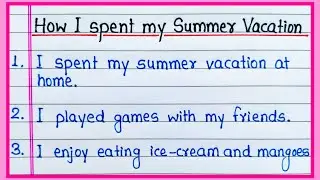 How I spent my Summer Vacation
1. I spent my summer vacation at
home.
2. I played games with my friends.
3. I enjoy eating ice-cream and mangoes